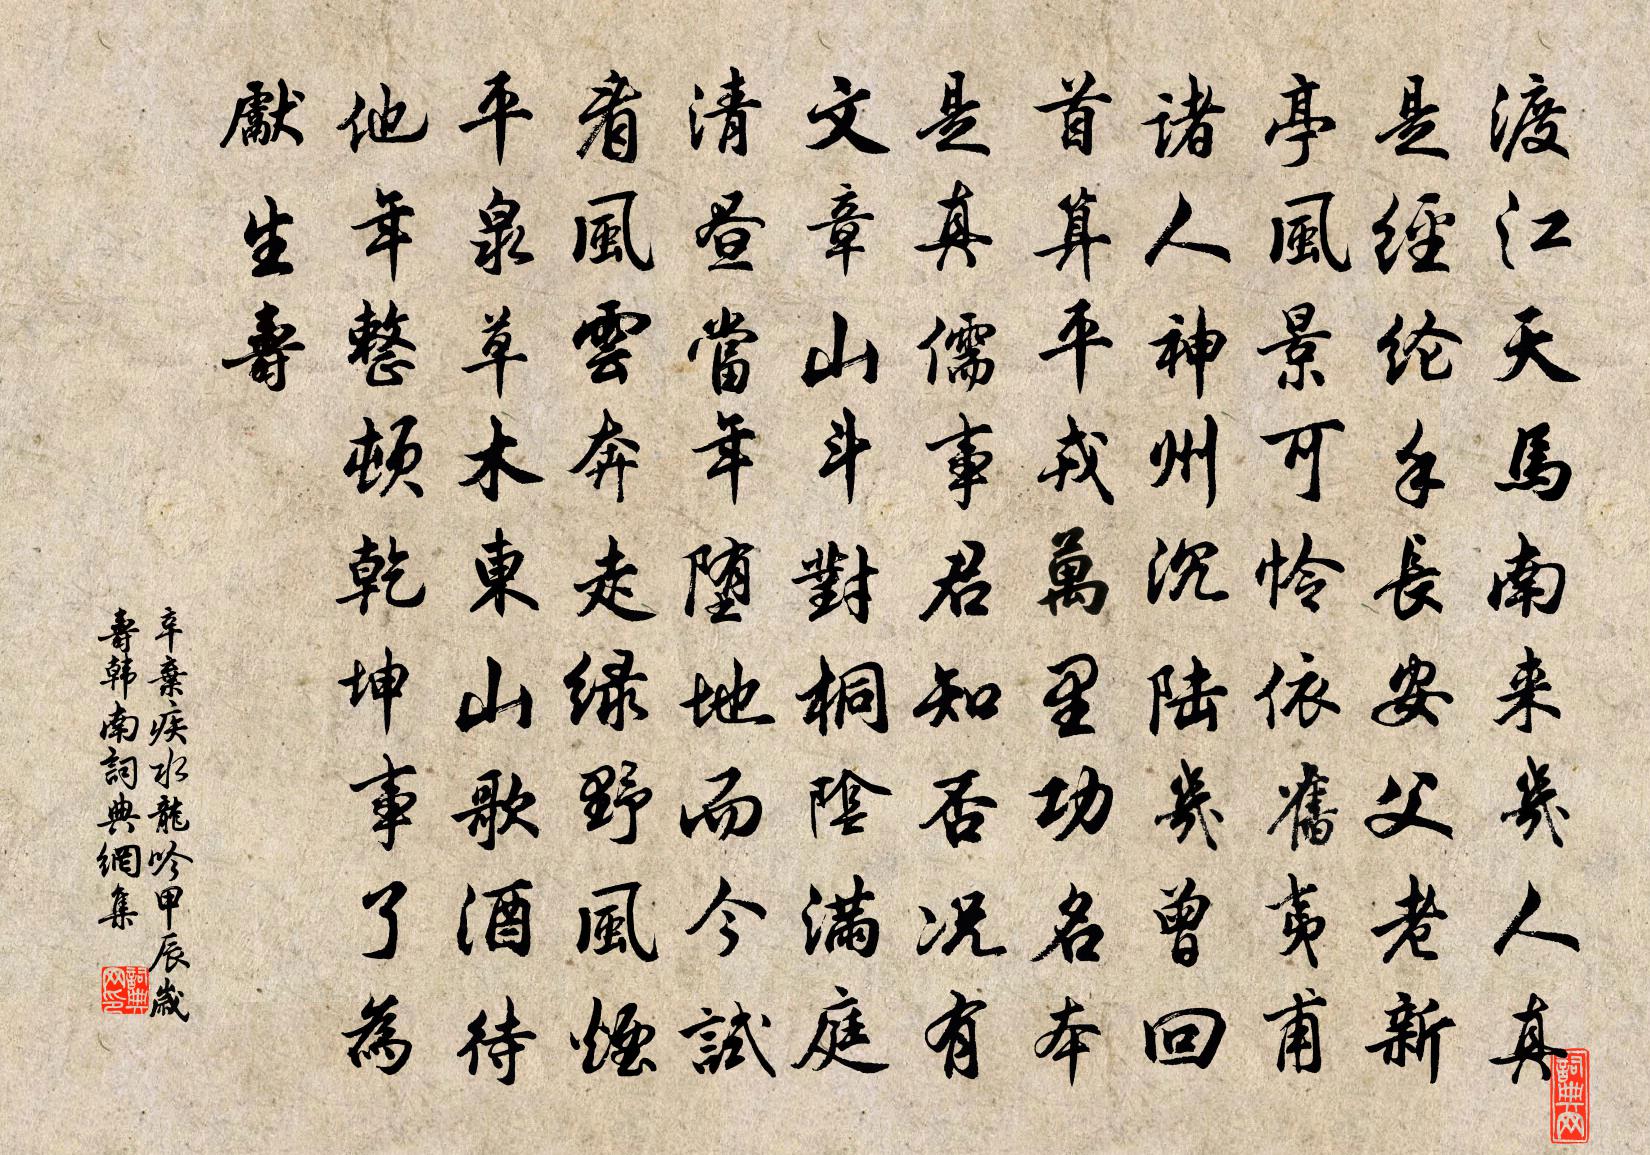 渡江天馬南来幾人真
是經纶手長安父老新
亭風景可怜依舊夷甫
诸人神州沉陆幾曾回
首算平戎萬里功名本
是真儒事君知否况有
文章山斗對桐陰满庭
清昼當年堕地而今試
看風雲奔走绿野風煙
平泉草木東山歌酒待
他年整頓乾坤事了為
獻生壽
辛棄疾水龍吟甲辰歲
壽韩南詞典網集
詞典网印
詞典网